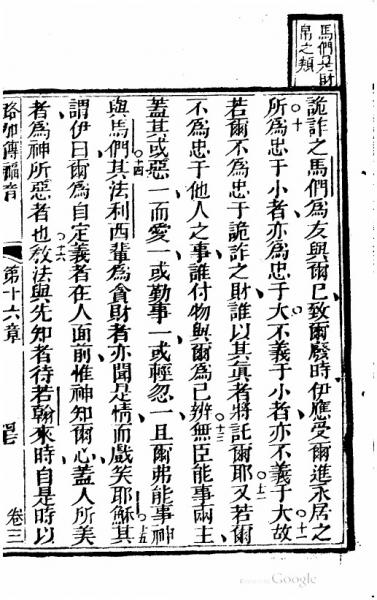 馬們財
帛之類
詭詐之馬們為友與爾已致爾廢時伊應受爾進永居之
所為忠于小者亦為忠于大不義于小者亦不義于大故
若爾不為忠于詭詐之財誰以其眞者將託爾耶又若爾
不為忠于他人之事誰付物與爾為己辨無臣能事兩主
蓋其或惡一而愛一或勤事一或輕忽一且爾弗能事神
與馬們其法利西輩為貪財者亦聞是情而戲笑耶穌其
謂伊曰爾為自定義者在人面前惟神知爾心蓋人所美
者為神所惡者也教法與先知者待若翰來時自是時以
路加傳福音 第十六章 卷三
Google